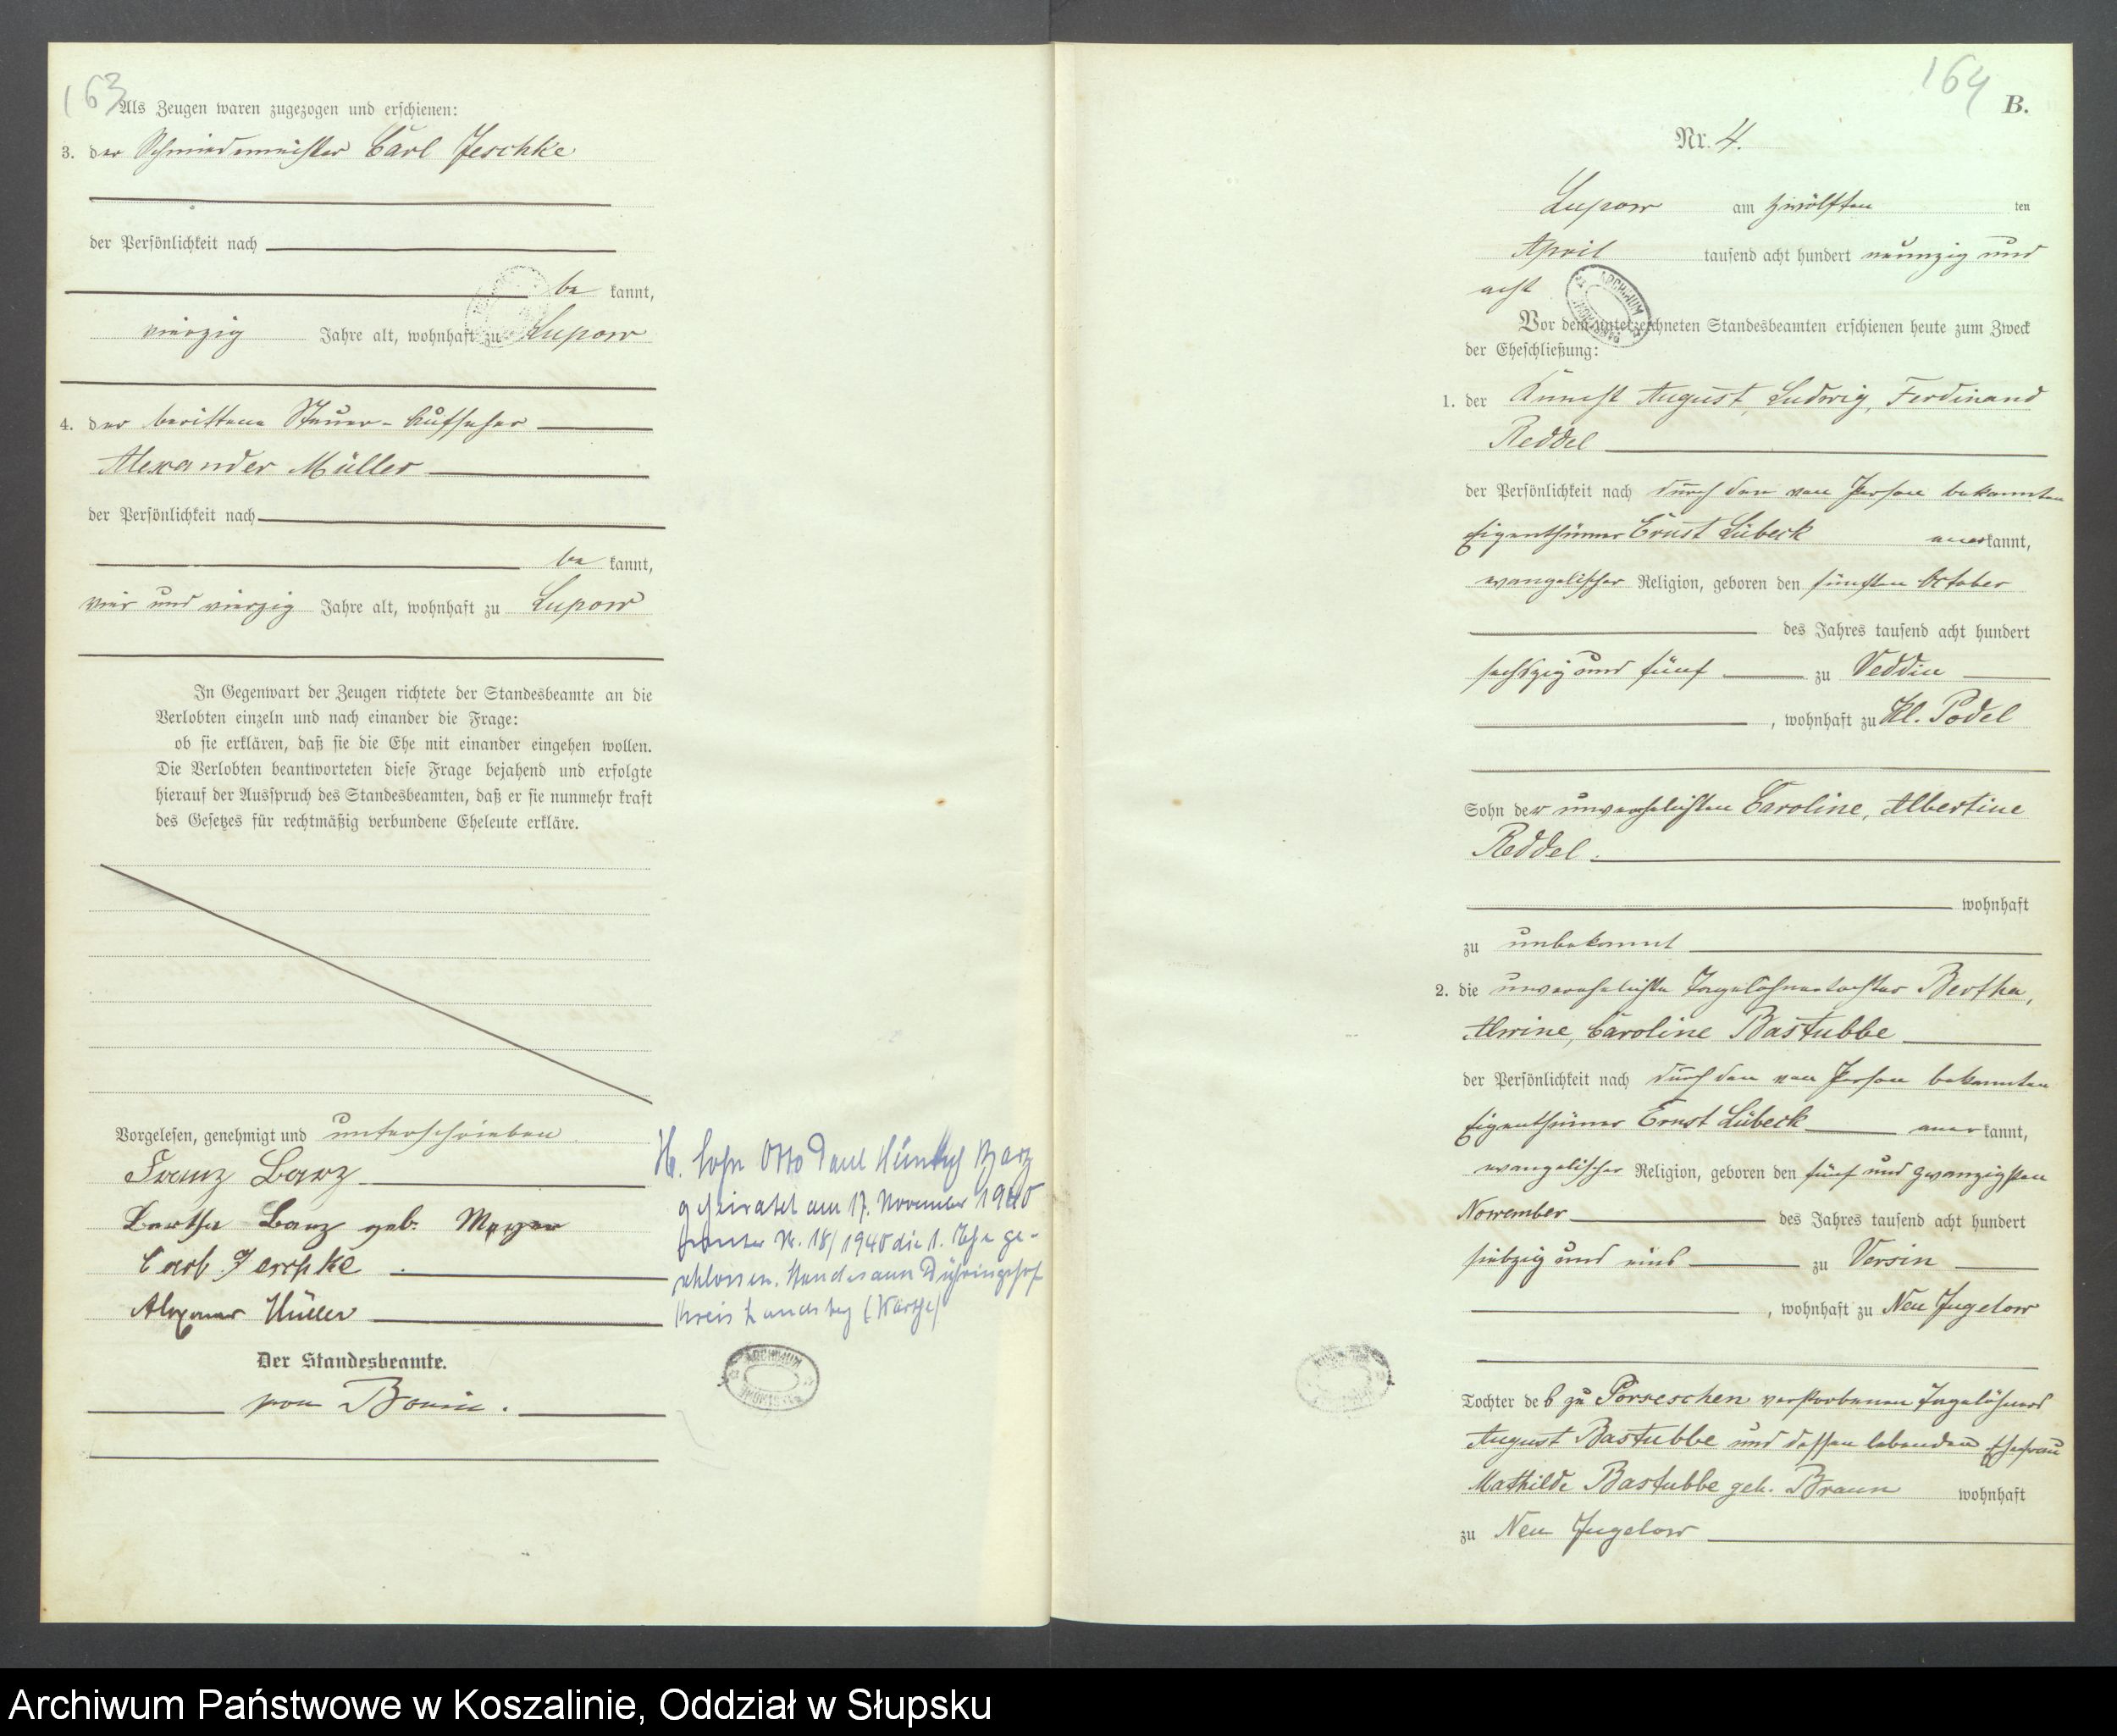 163
Als Zeugen waren zugezogen und erschienen:
3. der Schmiedemeister Carl Jeschke
der Persönlichkeit nach
be kannt,
vierzig Jahre alt, wohnhaft zu Lupow
4. der berittene Steuer-Aufseher
Alexander Müller
der Persönlichkeit nach
be kannt,
vier und vierzig Jahre alt, wohnhaft zu Lupow
In Gegenwart der Zeugen richtete der Standesbeamte an die
Verlobten einzeln und nach einander die Frage:
ob sie erklären, daß sie die Ehe mit einander eingehen wollen.
Die Verlobten beantworteten diese Frage bejahend und erfolgte
hierauf der Ausspruch des Standesbeamten, daß er sie nunmehr kraft
des Gesetzes für rechtmäßig verbundene Eheleute erkläre.
Vorgelesen, genehmigt und unterschrieben.
Franz Barz
Bertha Barz geb. Meyer
Carl Jeschke
Alexander Müller
Der Standesbeamte.
von Bonin.
Sohn Otto Paul Barz
geheiratet am 17. November 1940
Nr. 18/1940 die 1. Ehe ge-
schlossen. Standesamt Dühringshof
Kreis Landsberg (Warthe)
ARCHIWUM
164
B.
Nr. 4.
Lupow am zwölften ten
April tausend acht hundert neunzig und
acht
ARCHIWUM
Vor dem unterzeichneten Standesbeamten erschienen heute zum Zweck
der Eheschließung:
1. der Knecht August, Ludwig, Ferdinand
Reddel
der Persönlichkeit nach durch den von Person bekannten
Eigenthümer Ernst Lübeck anerkannt,
evangelischer Religion, geboren den fünften October
des Jahres tausend acht hundert
sechszig und fünf zu Veddin
, wohnhaft zu Kl. Podel
Sohn der unverehelichten Caroline, Albertine
Reddel.
wohnhaft
zu unbekannt
2. die unverehelichte Tagelöhnertochter Bertha,
Alwine, Caroline Bastubbe
der Persönlichkeit nach durch den von Person bekannten
Eigenthümer Ernst Lübeck aner kannt,
evangelischer Religion, geboren den fünf und zwanzigsten
November des Jahres tausend acht hundert
siebzig und eins zu Versin
, wohnhaft zu Neu Jugelow
Tochter des zu Porreschen verstorbenen Tagelöhners
August Bastubbe und dessen lebenden Ehefrau
Mathilde Bastubbe geb. Braun wohnhaft
zu Neu Jugelow
Archiwum Państwowe w Koszalinie, Oddział w Słupsku